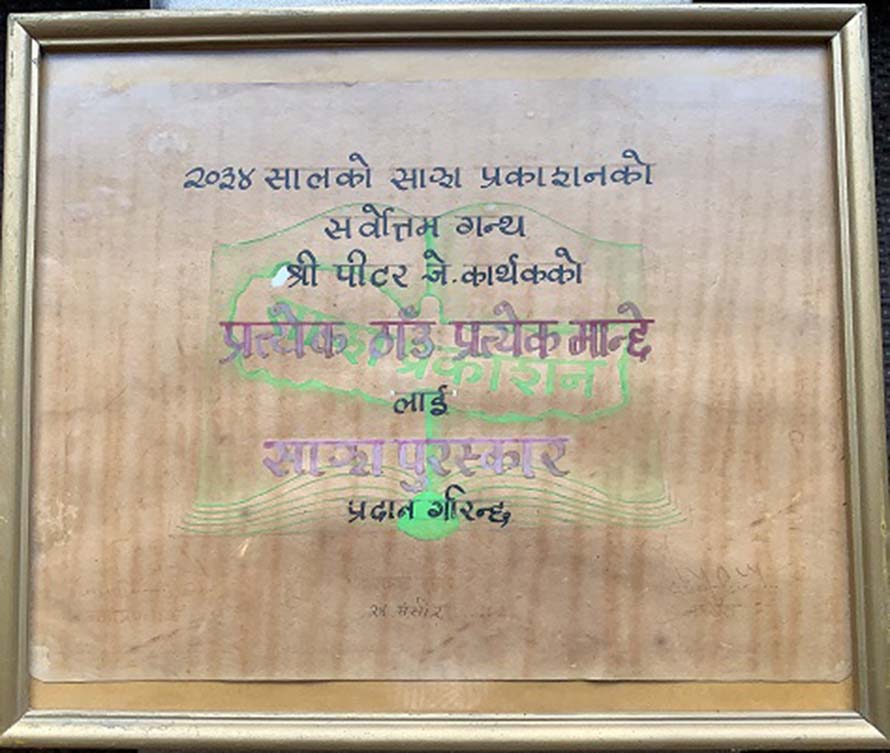 २०३४ सालको साझा प्रकाशनको
सर्वोत्तम गन्थ
श्री पीटर जे. कार्थकको
प्रत्येक ठाँउ प्रत्येक मान्छे
प्रकाशन
लाई
साझा पुरस्कार
प्रदान गरिन्छ
मंसीर